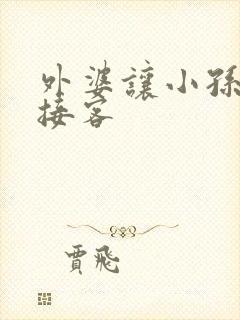 外婆讓小孫
接客
賈飛